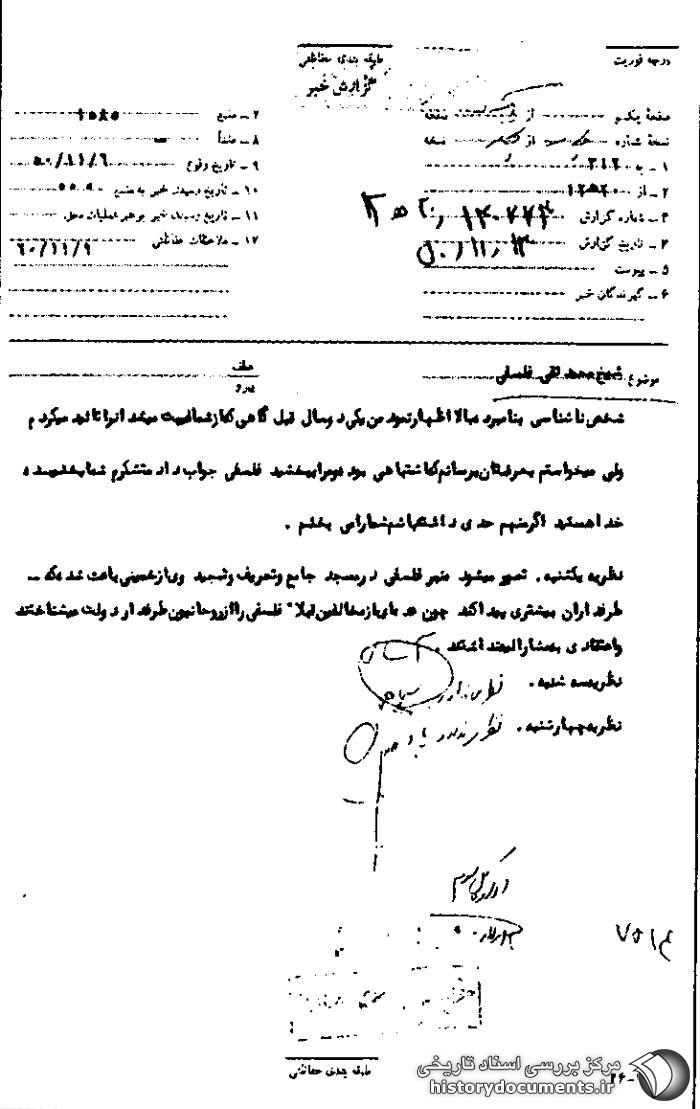 درجه فوریت
طبقه بندی حفاظتی
گزارش خبر
صفحهٔ یکم از نسخه
نسخهٔ شماره از نسخه
۱ – به ۳۱۲
۲ – از
۳ – شماره گزارش
۴ – تاریخ گزارش ۵۰/۱۱/۱۳
۵ – پیوست
۶ – گیرندگان خبر
۷ – منبع ۱۰۸۵
۸ – منشأ –
۹ – تاریخ وقوع ۵۰/۱۱/۶
۱۰ – تاریخ رسیدن خبر به منبع
۱۱ – تاریخ رسیدن خبر برهبر عملیات محل
۱۲ – ملاحظات حفاظتی ۶۰/۱۱/۹
موضوع شیخ محمد تقی فلسفی
عطف
پیرو
شخص ناشناسی بنامبرده بالا اظهار نمود من یکی دو سال قبل گاهی که از شما غیبت میشد آنرا تائید میکردم
ولی میخواستم بعرضتان برسانم که اشتباهی بود مرا ببخشید فلسفی جواب داد متشکرم شما بخشیده
خدا هستید اگر منهم حدی داشته باشم شما را می بخشم .
نظریه یکشنبه . تصور میشود منبر فلسفی در مسجد جامع و تعریف و تمجید وی از خمینی باعث شده که –
طرفداران بیشتری پیدا کند چون عده ای از مخالفین قبلا" فلسفی را از روحانیون طرفدار دولت میشناختند
و اعتقادی به مشارالیه نداشتند .
نظریه سه شنبه . نظری ندارد
نظریه چهارشنبه . نظری ندارد
طبقه بندی حفاظتی
مرکز بررسی اسناد تاریخی
historydocuments.ir